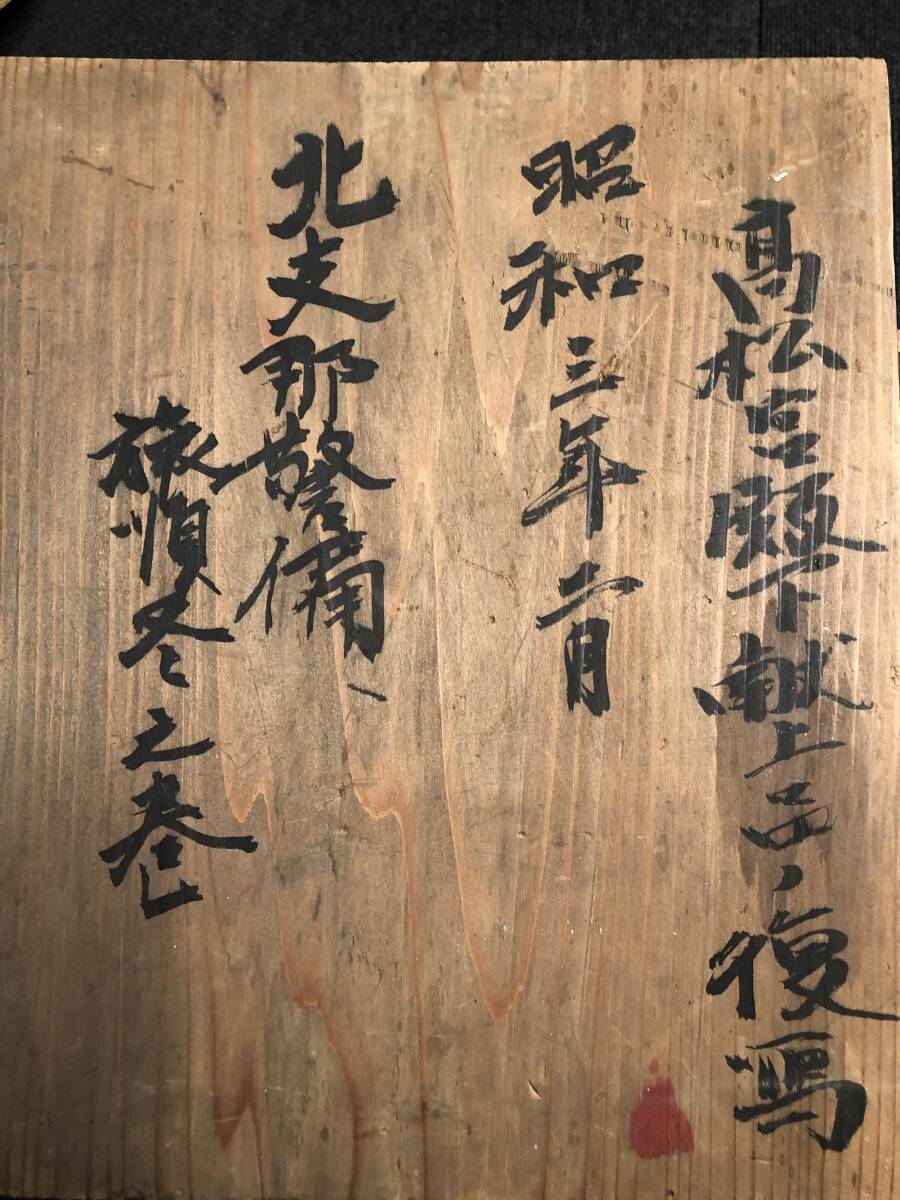 高松宮殿下献上品ノ復写
昭和三年二月
北支那警備、
旅順冬之巻